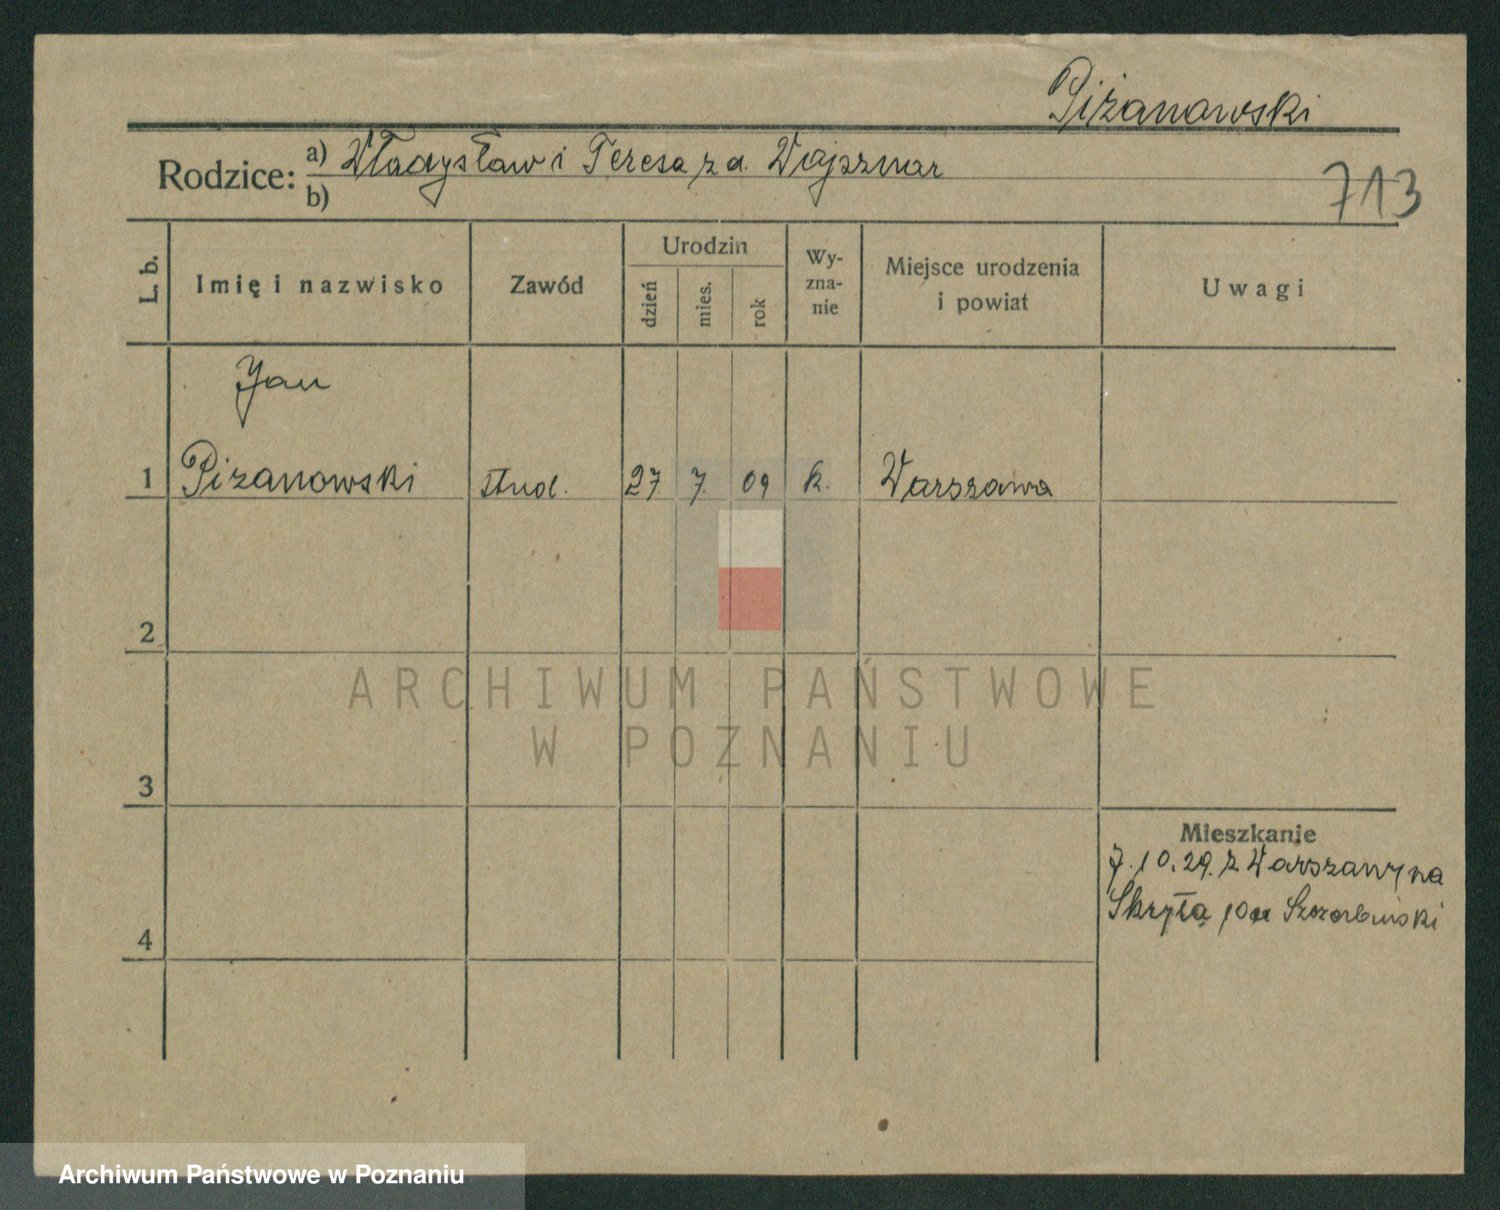 Piżanowski
Rodzice: a) Władysław i Teresa z d. Wajsznar
b)
713
L. b.
Imię i nazwisko
Zawód
Urodzin
dzień
mies.
rok
Wy-
zna-
nie
Miejsce urodzenia
i powiat
Uwagi
Jan
1 Piżanowski stud. 27. 7. 09 k. Warszawa
2
3
4
Mieszkanie
7.10.29. z Warszawy na
Skrytą 10 Szczerbiński
ARCHIWUM PAŃSTWOWE
W POZNANIU
Archiwum Państwowe w Poznaniu